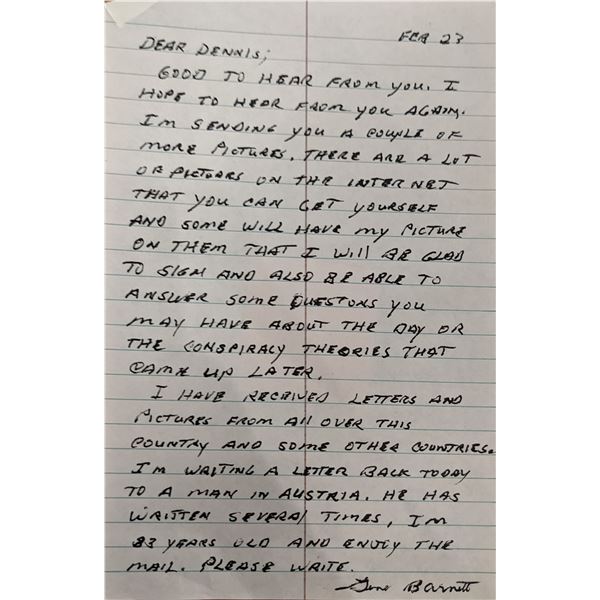 FEB 23
DEAR DENNIS;
GOOD TO HEAR FROM YOU. I
HOPE TO HEAR FROM YOU AGAIN.
I'M SENDING YOU A COUPLE OF
MORE PICTURES. THERE ARE A LOT
OF PICTUORS ON THE INTERNET
THAT YOU CAN GET YOURSELF
AND SOME WILL HAVE MY PICTURE
ON THEM THAT I WILL BE GLAD
TO SIGN AND ALSO BE ABLE TO
ANSWER SOME QUESTONS YOU
MAY HAVE ABOUT THE DAY OR
THE CONSPIRACY THEORIES THAT
CAME UP LATER.
I HAVE RECEIVED LETTERS AND
PICTURES FROM ALL OVER THIS
COUNTRY AND SOME OTHER COUNTRIES.
I'M WRITING A LETTER BACK TODAY
TO A MAN IN AUSTRIA. HE HAS
WRITTEN SEVERAL TIMES, I'M
83 YEARS OLD AND ENJOY THE
MAIL. PLEASE WRITE.
Gene Barnett